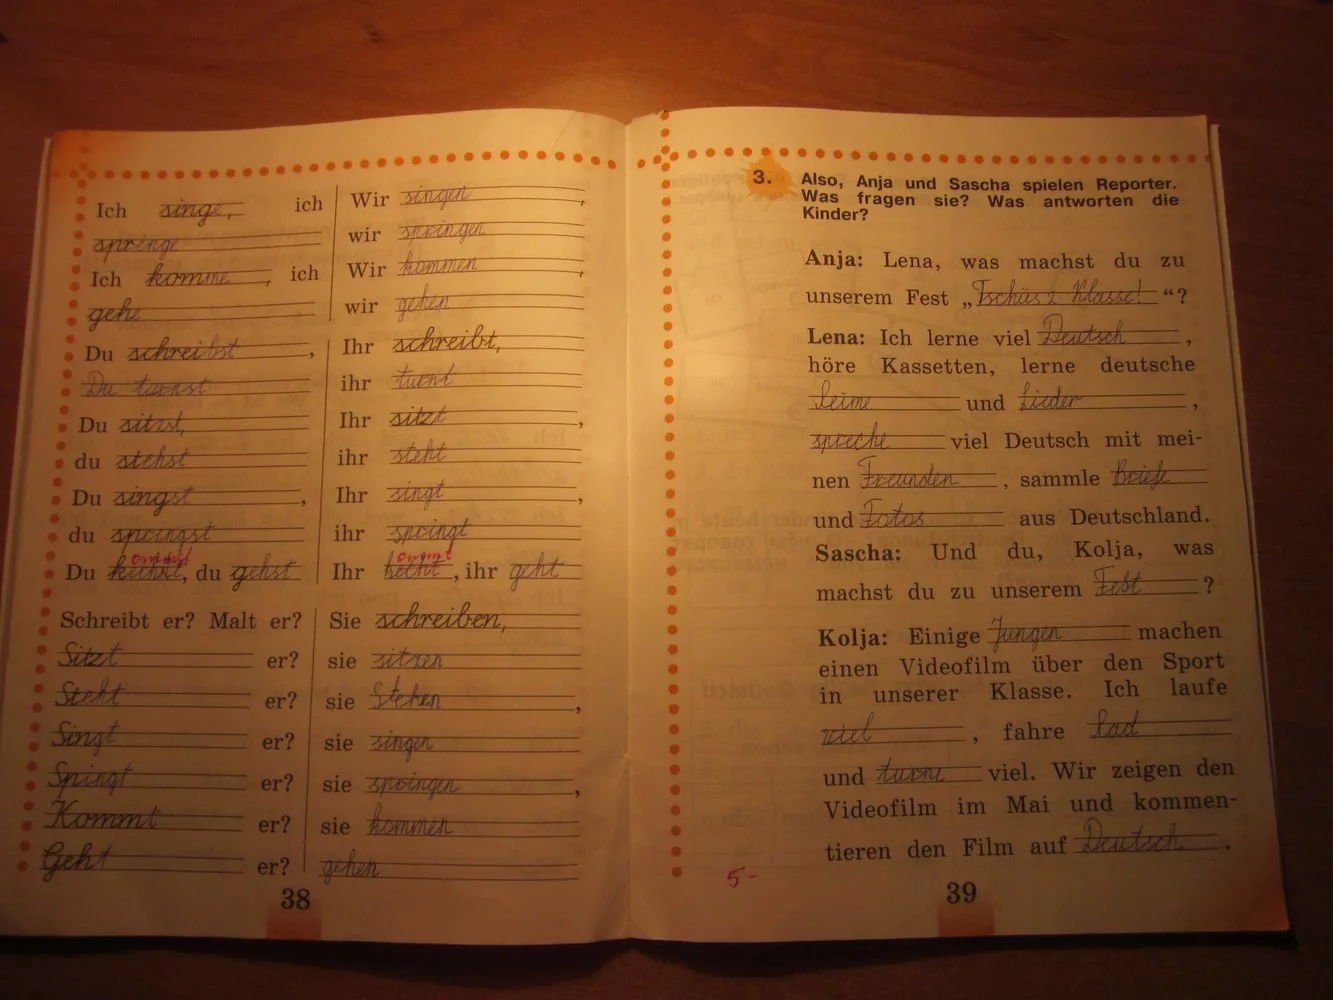 Ich singe, ich
springe
Ich komme, ich
gehe
Du schreibst,
Du turnst
Du sitzst,
du stehst
Du singst,
du springst
Du , du gehst
Schreibt er? Malt er?
Sitzt er?
Steht er?
Singt er?
Spingt er?
Kommt er?
Geht er?
38
Wir singen,
wir springen
Wir kommen,
wir gehen
Ihr schreibt,
ihr turnt
Ihr sitzt,
ihr steht
Ihr singt,
ihr springt
ommt
Ihr , ihr geht
Sie schreiben,
sie sitzen
sie Stehen,
sie singen
sie springen,
sie kommen
gehen
3. Also, Anja und Sascha spielen Reporter.
Was fragen sie? Was antworten die
Kinder?
Anja: Lena, was machst du zu
unserem Fest „Tschüs 2 Klasse! “?
Lena: Ich lerne viel Deutsch,
höre Kassetten, lerne deutsche
Reime und Lieder,
spreche viel Deutsch mit mei-
nen Freunden, sammle Briefe
und Fotos aus Deutschland.
Sascha: Und du, Kolja, was
machst du zu unserem Fest ?
Kolja: Einige Jungen machen
einen Videofilm über den Sport
in unserer Klasse. Ich laufe
viel, fahre Rad
und turne viel. Wir zeigen den
Videofilm im Mai und kommen-
tieren den Film auf Deutsch.
5-
39